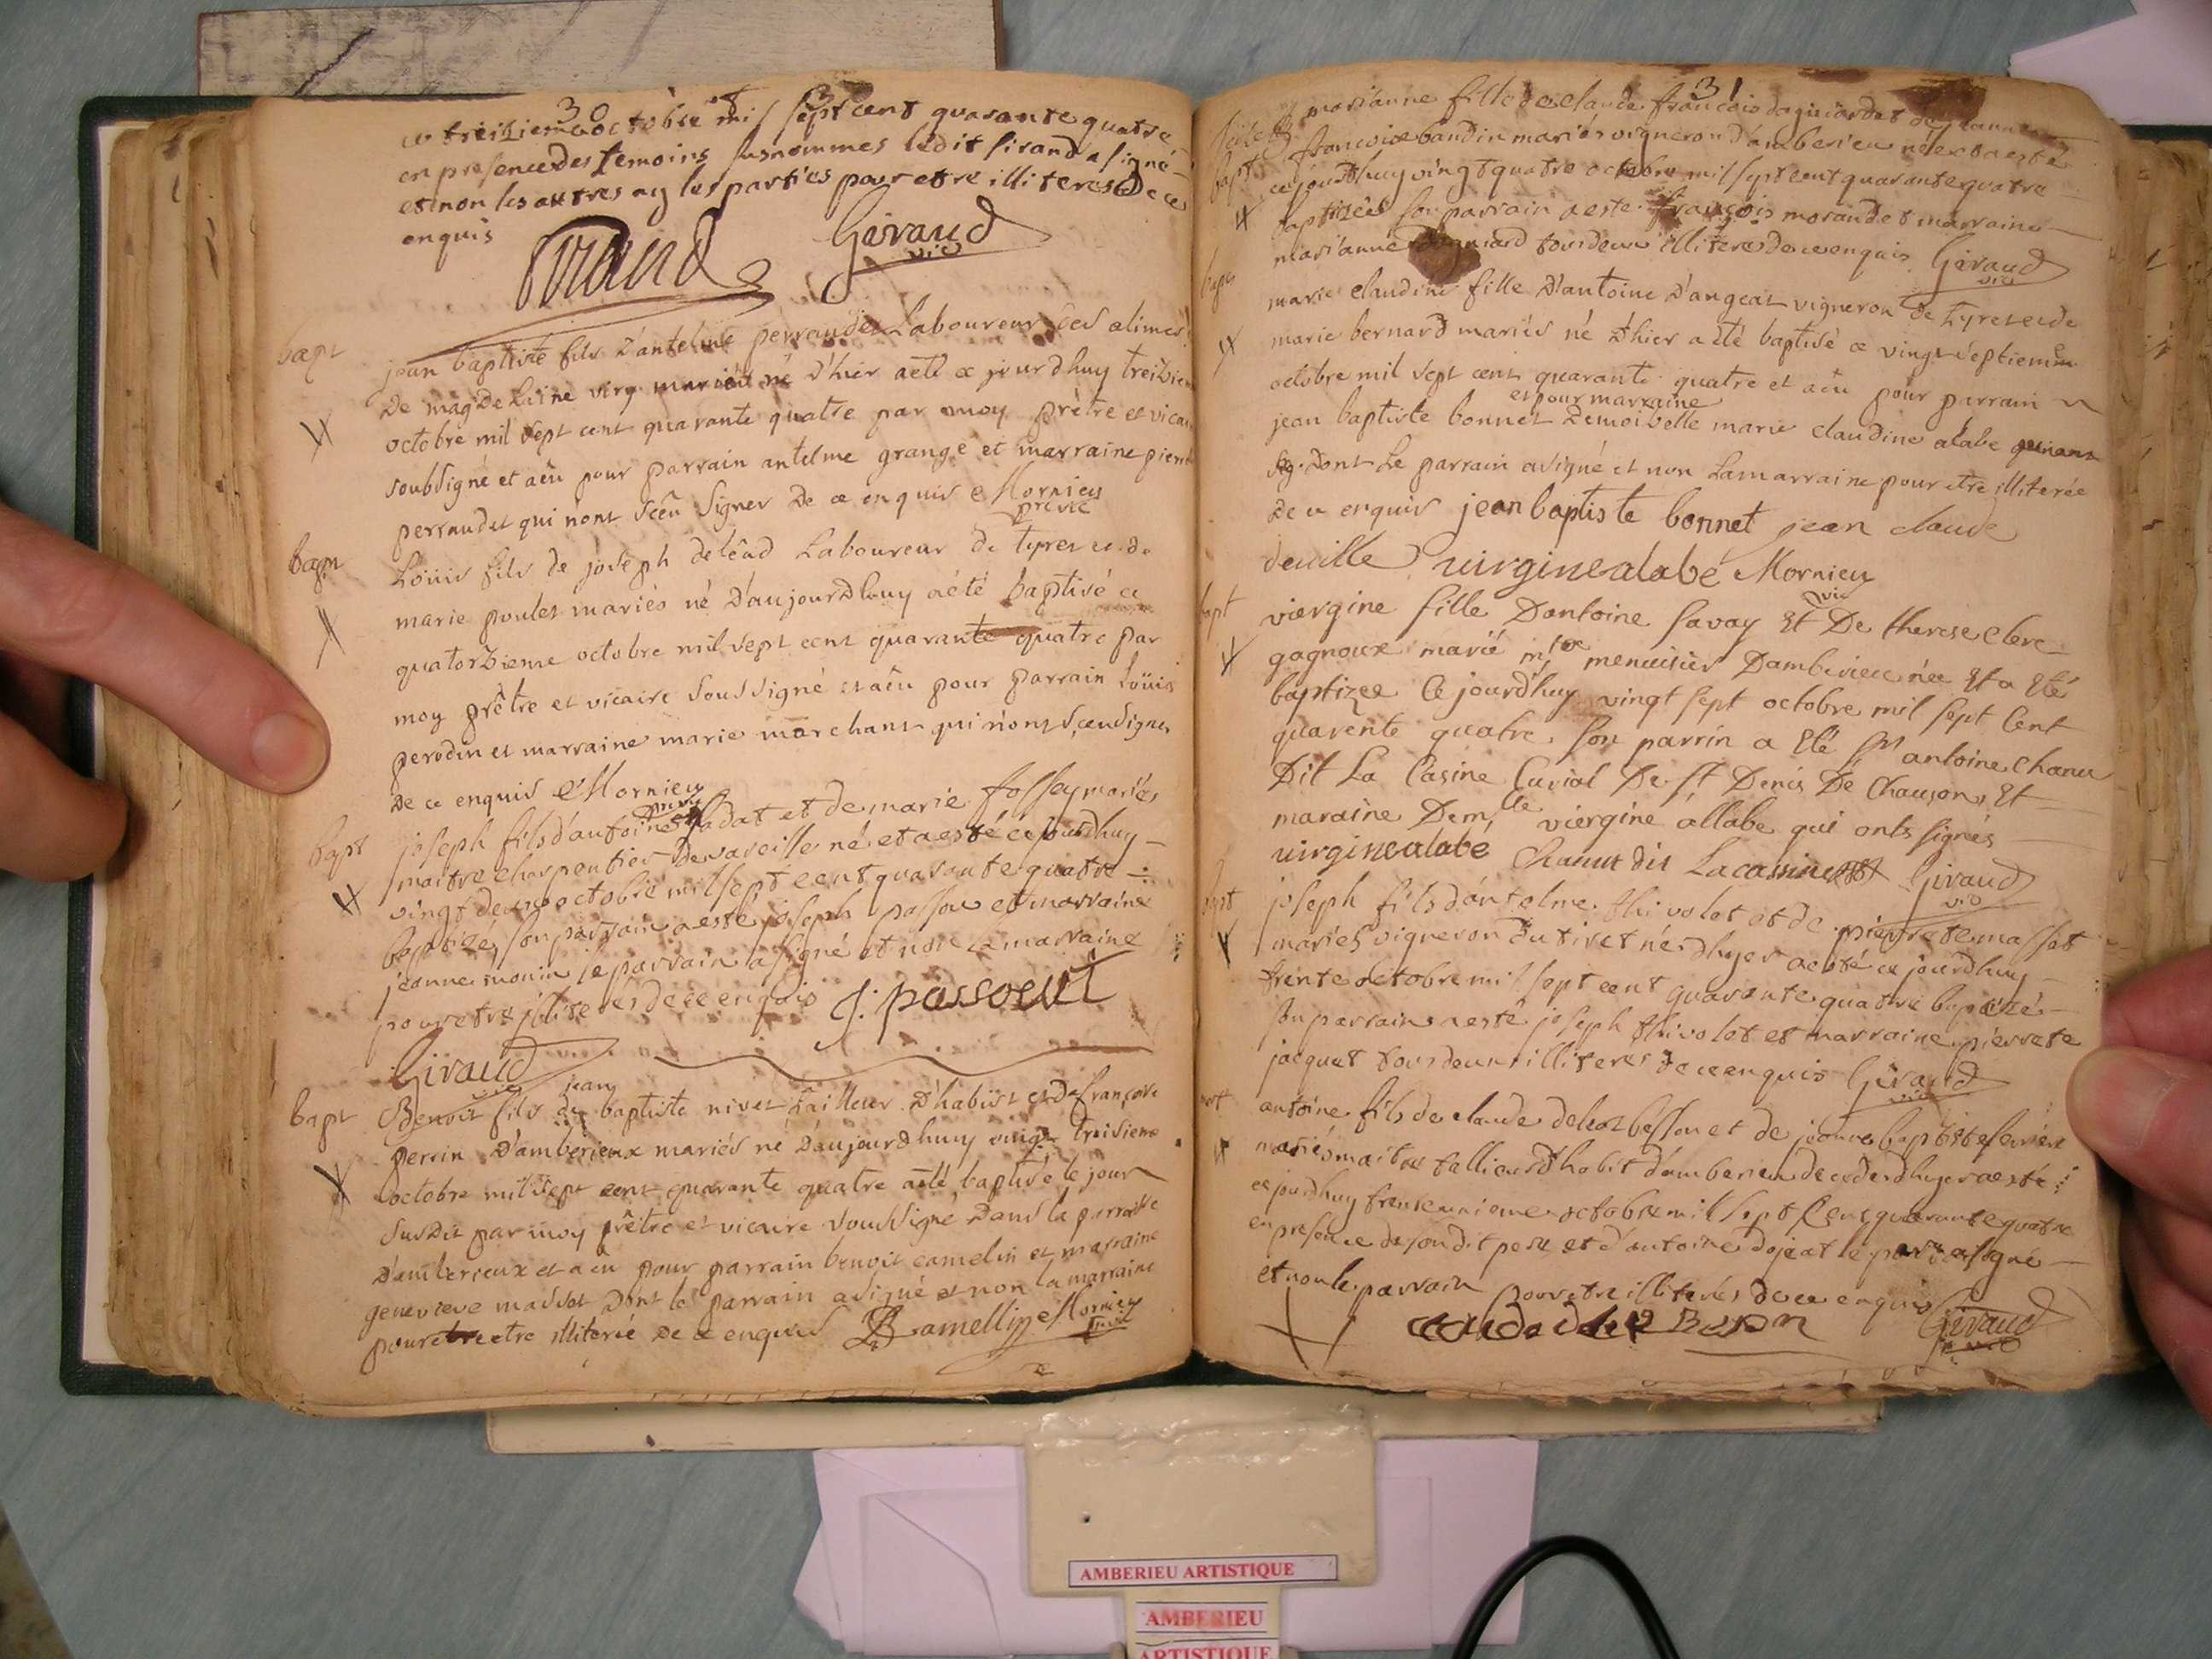 30
ce treiziem octobre mil sept cent quarante quatre
en presence des temoins susnommes ledit sirand a signé
et non les autres ny les parties pour etre illiteres De ce
enquis
Sirand Giraud
vic
bapt
jean baptiste fils d'antelme perraudet Laboureur des alimes
De magdeleine virg mariés né d'hier aété ce jourdhuy treiziem
octobre mil sept cent quarante quatre par moy prètre et vicai
soubsigné et aeu pour parrain antelme grange et marraine
perraudet qui n'ont sceu signer De ce enquis Mornieu
pre vic
bapt
Loüis fils de joseph delêad Laboureur de tyret et de
marie poulet mariés né d'aujourdhuy aété baptisé ce
quatorzieme octobre mil sept cent quarante quatre par
moy prêtre et vicaire soussigné et aeu pour parrain Loüis
perodin et marraine marie marchant qui n'ont sceu signer
De ce enquis Mornieu
pre vic
bapt
joseph fils d'antoine sadat et de marie fossey mariés
maitre charpentier de vareille né et a esté ce jourdhuy
vingt deux octobre mil sept cent quarante quatre
baptizé, son parrain a esté joseph passou et marraine
jeanne monin le parrain a signé et non la marraine
pour etre illiterés de ce enquis J: passout
Giraud
vic
bapt
Benoit fils de jean baptiste nivet tailleur d'habist et de françoise
perrin d'amberieux mariés né d'aujourdhuy vingt troisieme
octobre mil sept cent quarante quatre aété baptisé le jour
susdit par moy prêtre et vicaire soussigné dans la parroisse
d'amberieux et a eu pour parrain benoit camelin et marraine
genevieve massot dont le parrain a signé et non la marraine
pour etre illiterée de ce enquis B camellin Mornieu
31
marianne fille de claude francois dagniardet de
bapt
francoise baudin mariés vigneron d'amberieu née et a esté
ce jourdhuy vingt quatre octobre mil sept cent quarante quatre
baptizée son parrain a esté françois morandet marraine
marianne tous deux illiteres de ce enquis Giraud
vic
bapt
marie claudine fille d'antoine d'angeat vigneron de tyret et de
marie bernard mariés né d'hier a été baptisé ce vingt septieme
octobre mil sept cent quarante quatre et aeu pour parrain
et pour marraine
jean baptiste bonnet Demoiselle marie claudine alabe
Dont Le parrain asigné et non Lamarraine pour etre illiterée
De ce enquis jean baptiste bonnet jean claude
deville virginealabé Mornieu
vic
bapt
viergine fille Dantoine savay Et De therese clerc
gagnoux marié mtre menuisier Damberieux née Et a Eté
baptizee Ce jourd'huy vingt sept octobre mil sept Cent
quarente quatre. son parrin a Eté Sr antoine Chanu
Dit La Casine Curial De St Denis De Chauson, Et
maraine Demlle viergine allabe qui onts signés
virginealabé Chanut dit Lacassine Giraud
vic
bapt
joseph fils d'antelme thivolet et de pierrete massot
mariés vigneron du tiret né d'hyer aesté ce jourdhuy
trente octobre mil sept cent quarante quatre baptizé
son parrain a esté joseph thivolet et marraine pierrete
jacquet tous deux illiteres de ce enquis Giraud
vic
antoine fils de claude delvat besson et de jeanne baptiste
mariés maitre tallieur d'habit d'amberieu decedé d'hyer aesté
ce jourdhuy trente unieme octobre mil sept Cent quarante quatre
en presence de sondit pere et d'antoine dojeat le pere a signé
et non le parrain pour etre illiterés de ce enquis
Giraud
vic
AMBERIEU ARTISTIQUE
AMBERIEU
ARTISTIQUE